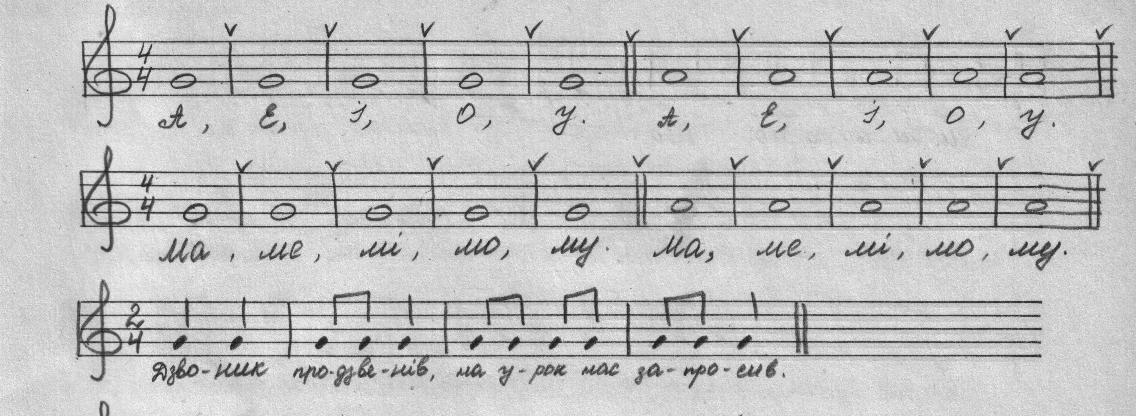 А, Е, І, О, У. А, Е, І, О, У.
Ма, ме, мі, мо, му. Ма, ме, мі, мо, му.
Дзво-ник про-дзве-нів, на у-рок нас за-про-сив.